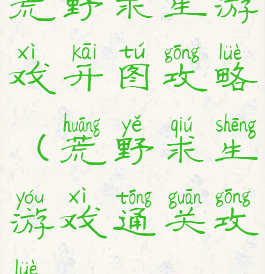 荒野求生游
xì kāi tú gōng lüè
戏开图攻略
huāng yě qiú shēng
（荒野求生
yóu xì tōng guān gōng
游戏通关攻
lüè